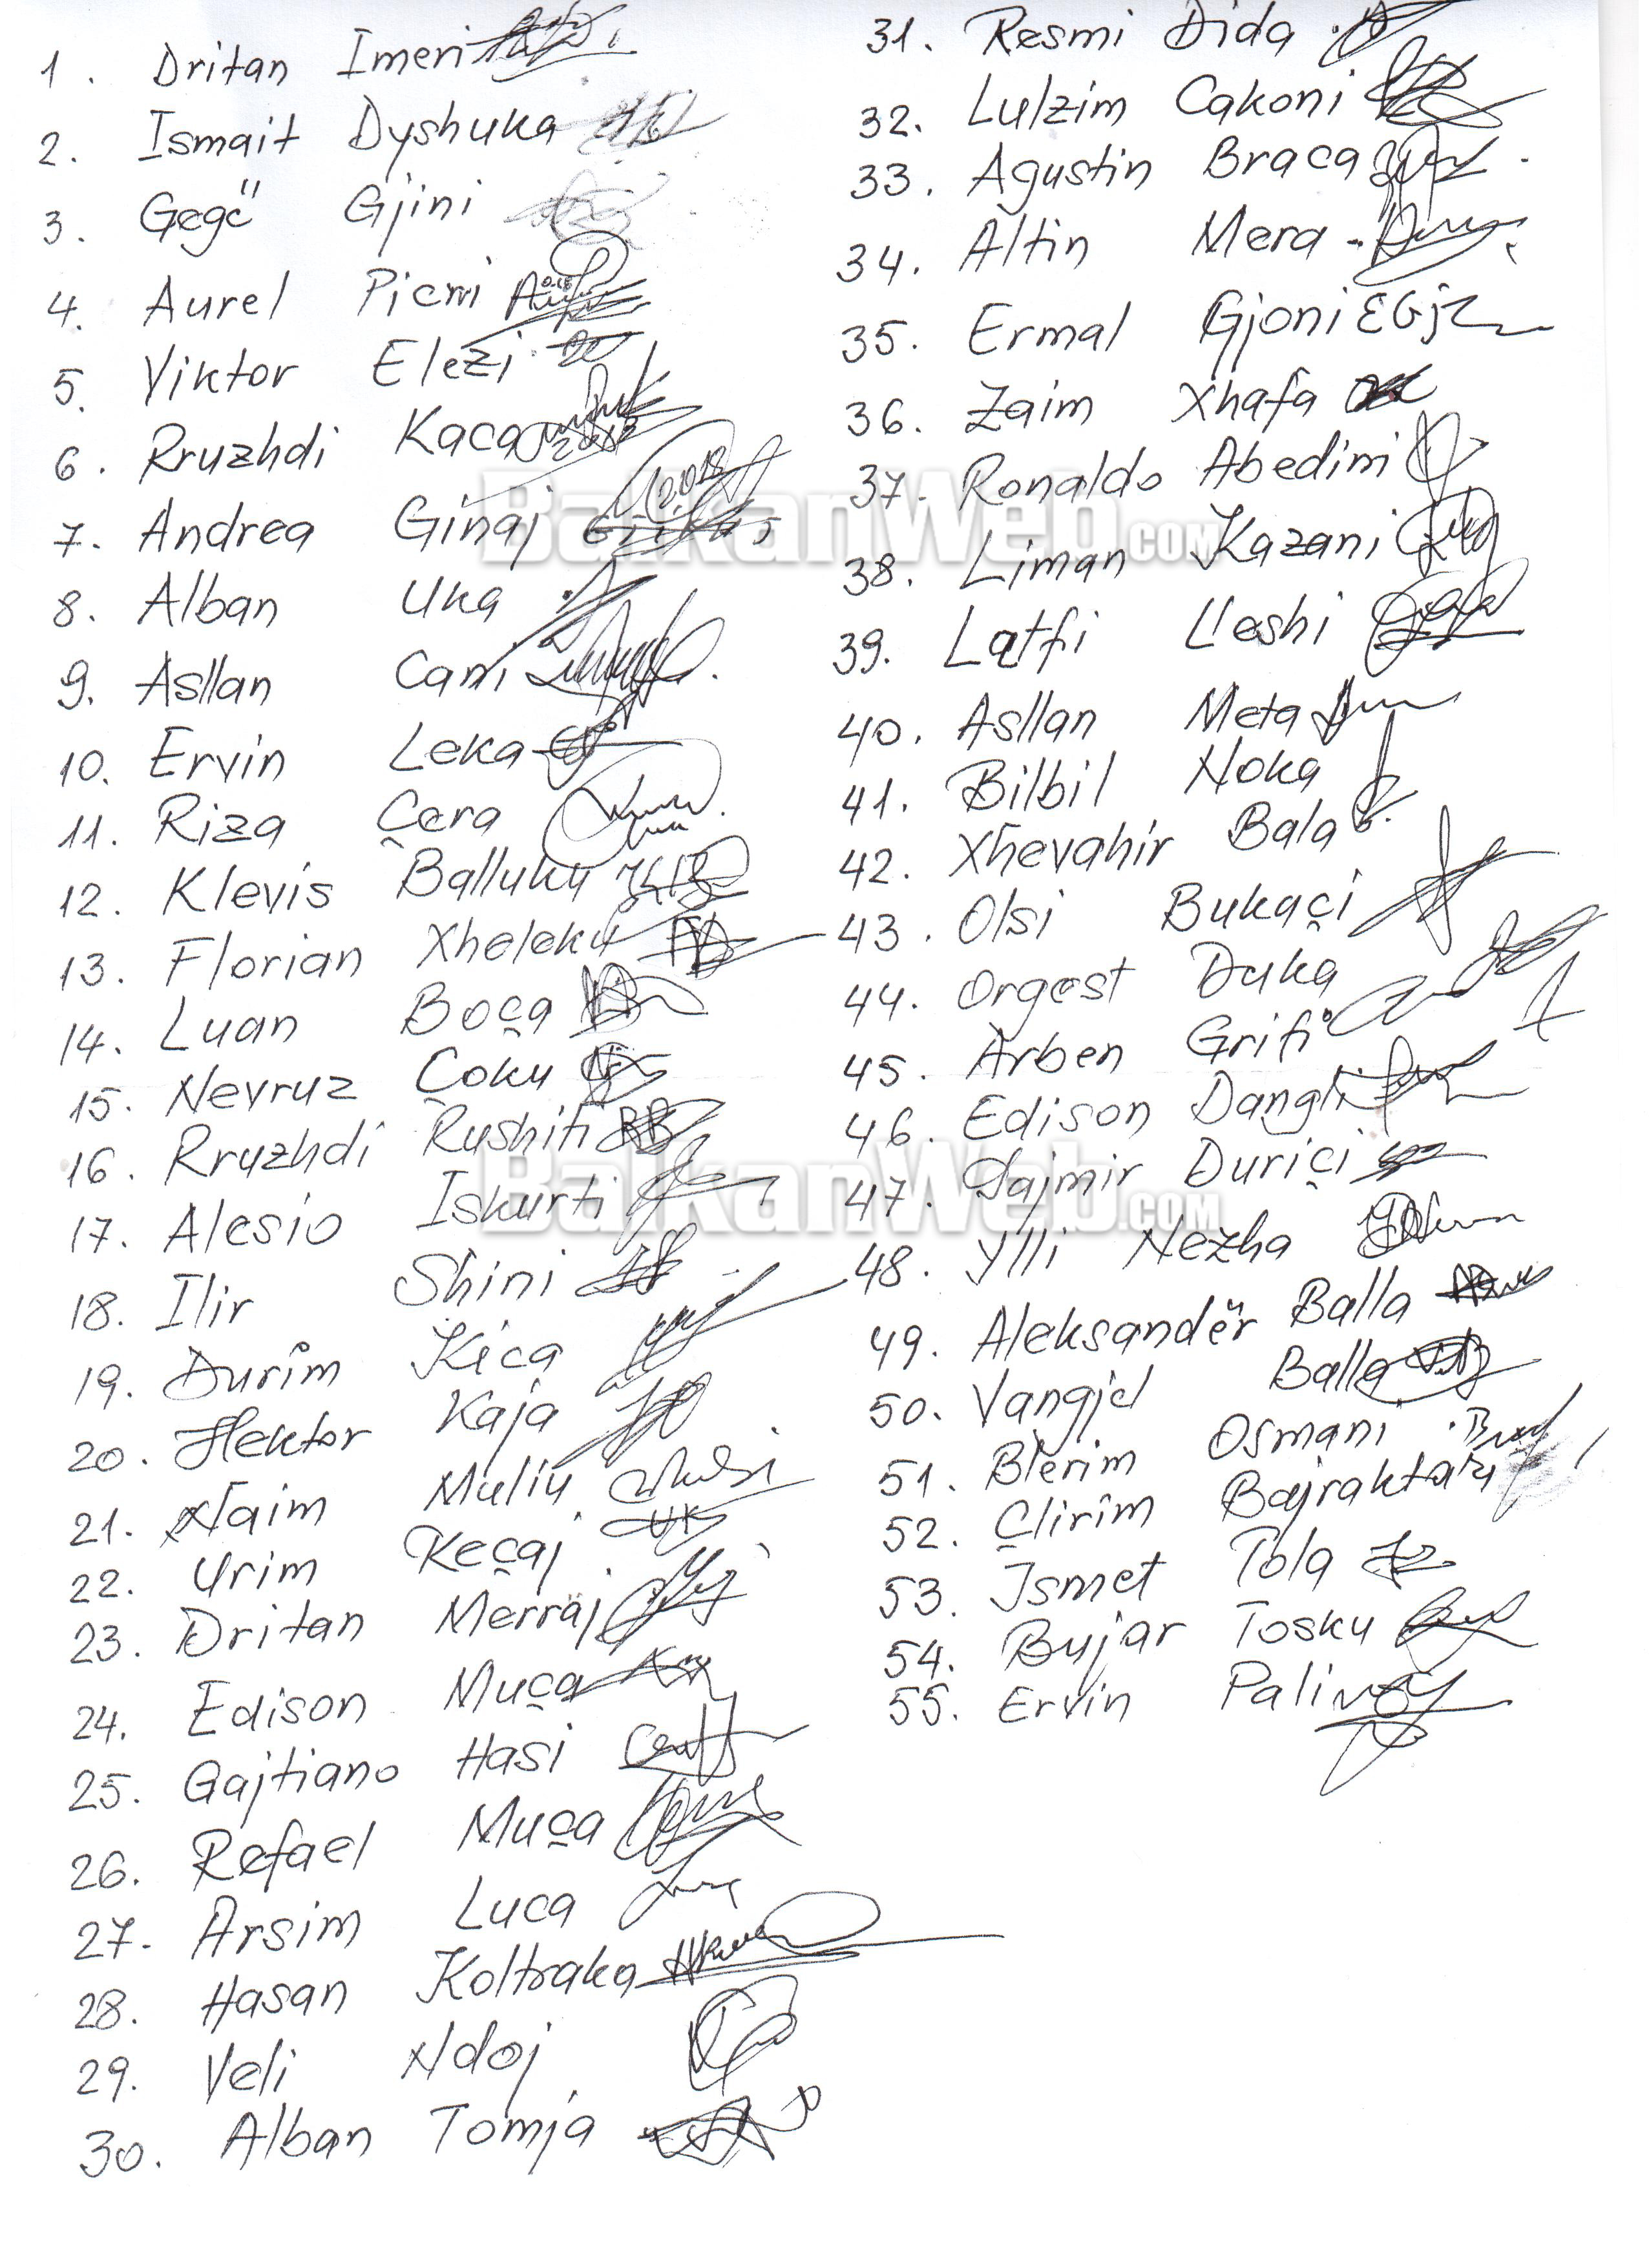 1. Dritan Imeri
2. Ismait Dyshuka
3. Gegë Gjini
4. Aurel Picmi
5. Viktor Elezi
6. Rruzhdi Kaca
7. Andrea Ginaj
8. Alban Uka
9. Asllan Cami
10. Ervin Leka
11. Riza Çera
12. Klevis Balluku
13. Florian Xheleku
14. Luan Boça
15. Nevruz Çoku
16. Rruzhdi Rushiti
17. Alesio Iskurti
18. Ilir Shini
19. Durim Kica
20. Hektor Kaja
21. Naim Muliu
22. Urim Keçaj
23. Dritan Merraj
24. Edison Muça
25. Gajtiano Hasi
26. Refael Muça
27. Arsim Luca
28. Hasan Koltraka
29. Veli Ndoj
30. Alban Tomja
31. Resmi Dida
32. Lulzim Cakoni
33. Agustin Braca
34. Altin Mera
35. Ermal Gjoni
36. Zaim Xhafa
37. Ronaldo Abedimi
38. Liman Kazani
39. Latfi Lleshi
40. Asllan Meta
41. Bilbil Noka
42. Xhevahir Bala
43. Olsi Bukaçi
44. Orgest Duka
45. Arben Grifi
46. Edison Dangli
47. Dajmir Duriçi
48. Ylli Nezha
49. Aleksandër Balla
50. Vangjel Balla
51. Blerim Osmani
52. Çlirim Bajraktari
53. Ismet Tola
54. Bujar Tosku
55. Ervin Pali
BalkanWeb.com
BalkanWeb.com